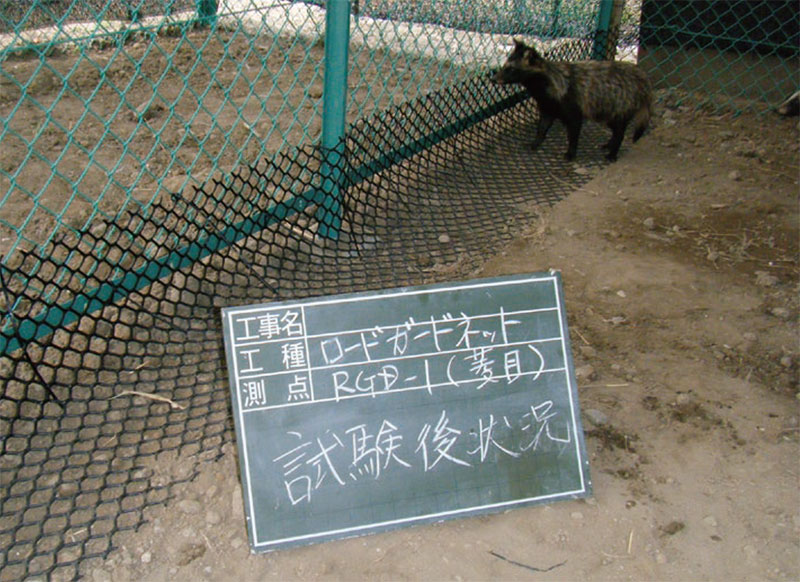 工事名
工種 ロードガードネット
測点 RGD-1(菱目)
試験後状況